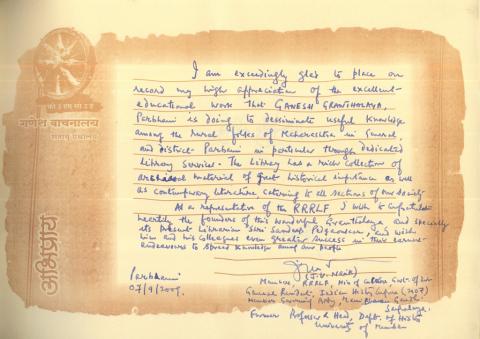 गणेश वाचनालय
अभिप्राय
I am exceedingly glad to place on
record my high appreciation of the excellent
educational work that GANESH GRANTHALAYA,
Parbhani is doing to dessiminate useful knowledge
among the rural folks of Maharashtra in General,
and district Parbhani in particular through dedicated
Library Service. The Library has a rich collection of
material of great historical importance as well
as contemporary literature catering to all sections of our society
As a representative of the RRRLF I wish to congratulate
heartily the founders of this wonderful Granthalaya and specially
its present Librarian Shri Sandeep and wish
him and his colleagues even greater success in their
endeavours to spread knowledge among our people
Parbhani
07/9/2009.
Member, RRRLF, Min of Culture Govt. of
General President, Indian History Congress (2007)
Member Governing Body,
Former Professor & Head, Dept. of History
University of Mumbai